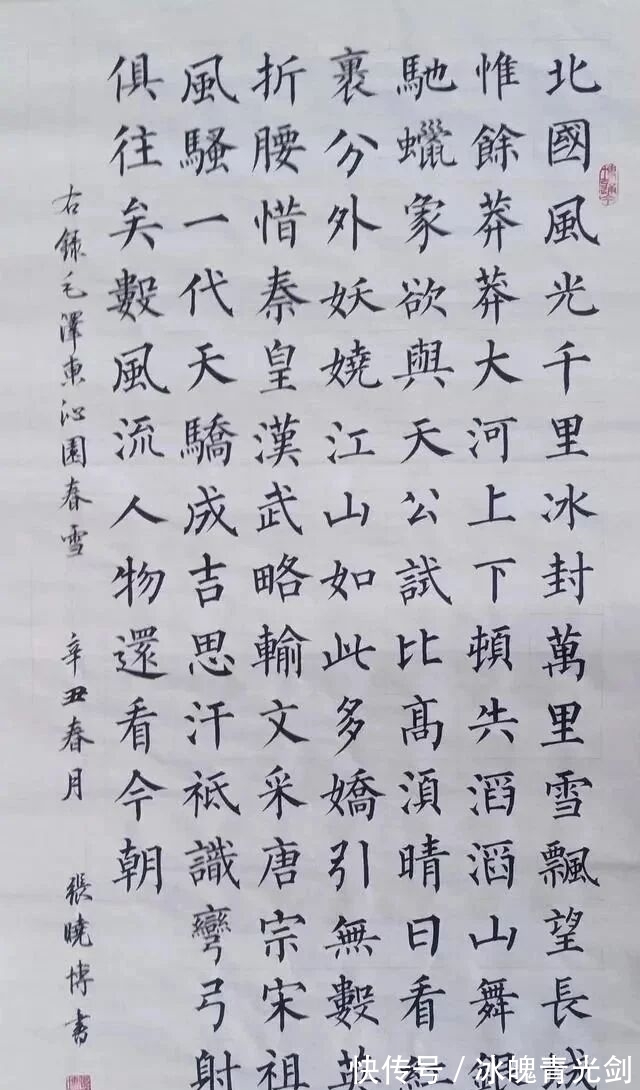 北國風光千里冰封萬里雪飄望長
惟餘莽莽大河上下頓失滔滔山舞
馳蠟象欲與天公試比高須晴日看
裹分外妖嬈江山如此多嬌引無數
折腰惜秦皇漢武略輸文采唐宗宋祖
風騷一代天驕成吉思汗祇識彎弓射
俱往矣數風流人物還看今朝
右錄毛澤東沁園春雪 辛丑春月 張曉博書
快传号/冰魄青光剑